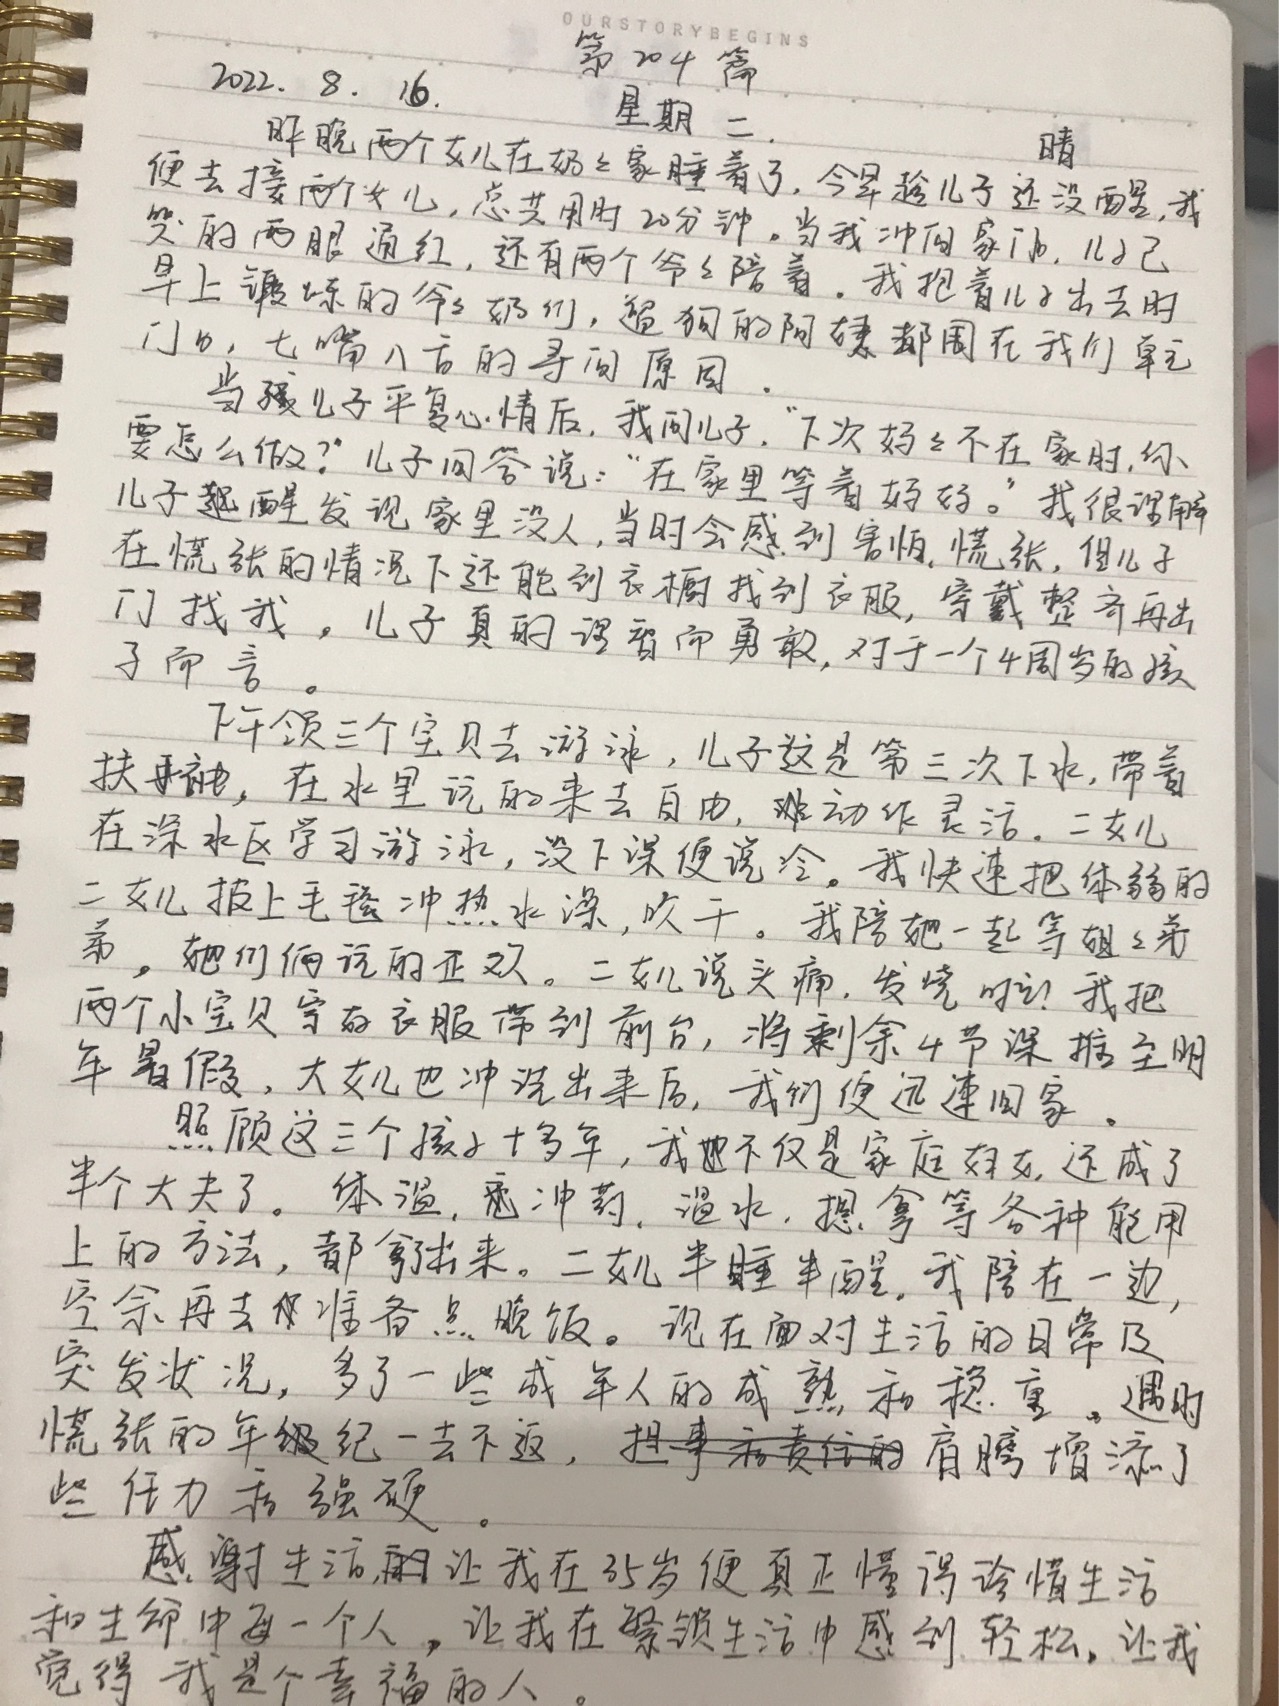 OURSTORYBEGINS
第204篇
2022. 8. 16. 星期二. 晴
昨晚两个女儿在奶々家睡着了，今早趁儿子还没醒，我
便去接两个女儿，总共用时20分钟。当我冲回家门口，儿子已
哭的两眼通红，还有两个爷々陪着。我抱着儿子出去时
早上锻炼的爷々奶们，遛狗的阿姨都围在我们单元
门口，七嘴八舌的寻问原因．
当孩儿子平复心情后，我问儿子，“下次妈々不在家时，你
要怎么做？”儿子回答说：“在家里等着妈妈。”我很理解
儿子起醒发现家里没人，当时会感到害怕，慌张，但儿子
在慌张的情况下还能到衣橱找到衣服，穿戴整齐再出
门找我，儿子真的理智而勇敢，对于一个4周岁的孩
子而言。
下午领三个宝贝去游泳，儿子这是第三次下水，带着
扶袖，在水里玩的来去自由，动作灵活。二女儿
在深水区学习游泳，没下课便说冷。我快速把体弱的
二女儿披上毛毯冲热水澡，吹干。我陪她一起等姐々弟
弟，她们俩玩的正欢。二女儿说头痛，发烧时！我把
两个小宝贝穿好衣服带到前台，将剩余4节课推至明
年暑假，大女儿也冲洗出来后，我们便迅速回家．
照顾这三个孩子十多年，我不仅是家庭妇女，还成了
半个大夫了。体温，冲药，温水，推拿等各种能用
上的方法，都拿出来。二女儿半睡半醒，我陪在一边，
空余再去准备点晚饭。现在面对生活的日常及
突发状况，多了一些成年人的成熟和稳重。遇时
慌张的年纪一去不返，担事和责任的肩膀增添了
些任力和强硬。
感谢生活，让我在35岁便真正懂得珍惜生活
和生命中每一个人，让我在繁锁生活中感到轻松，让我
觉得我是个幸福的人。